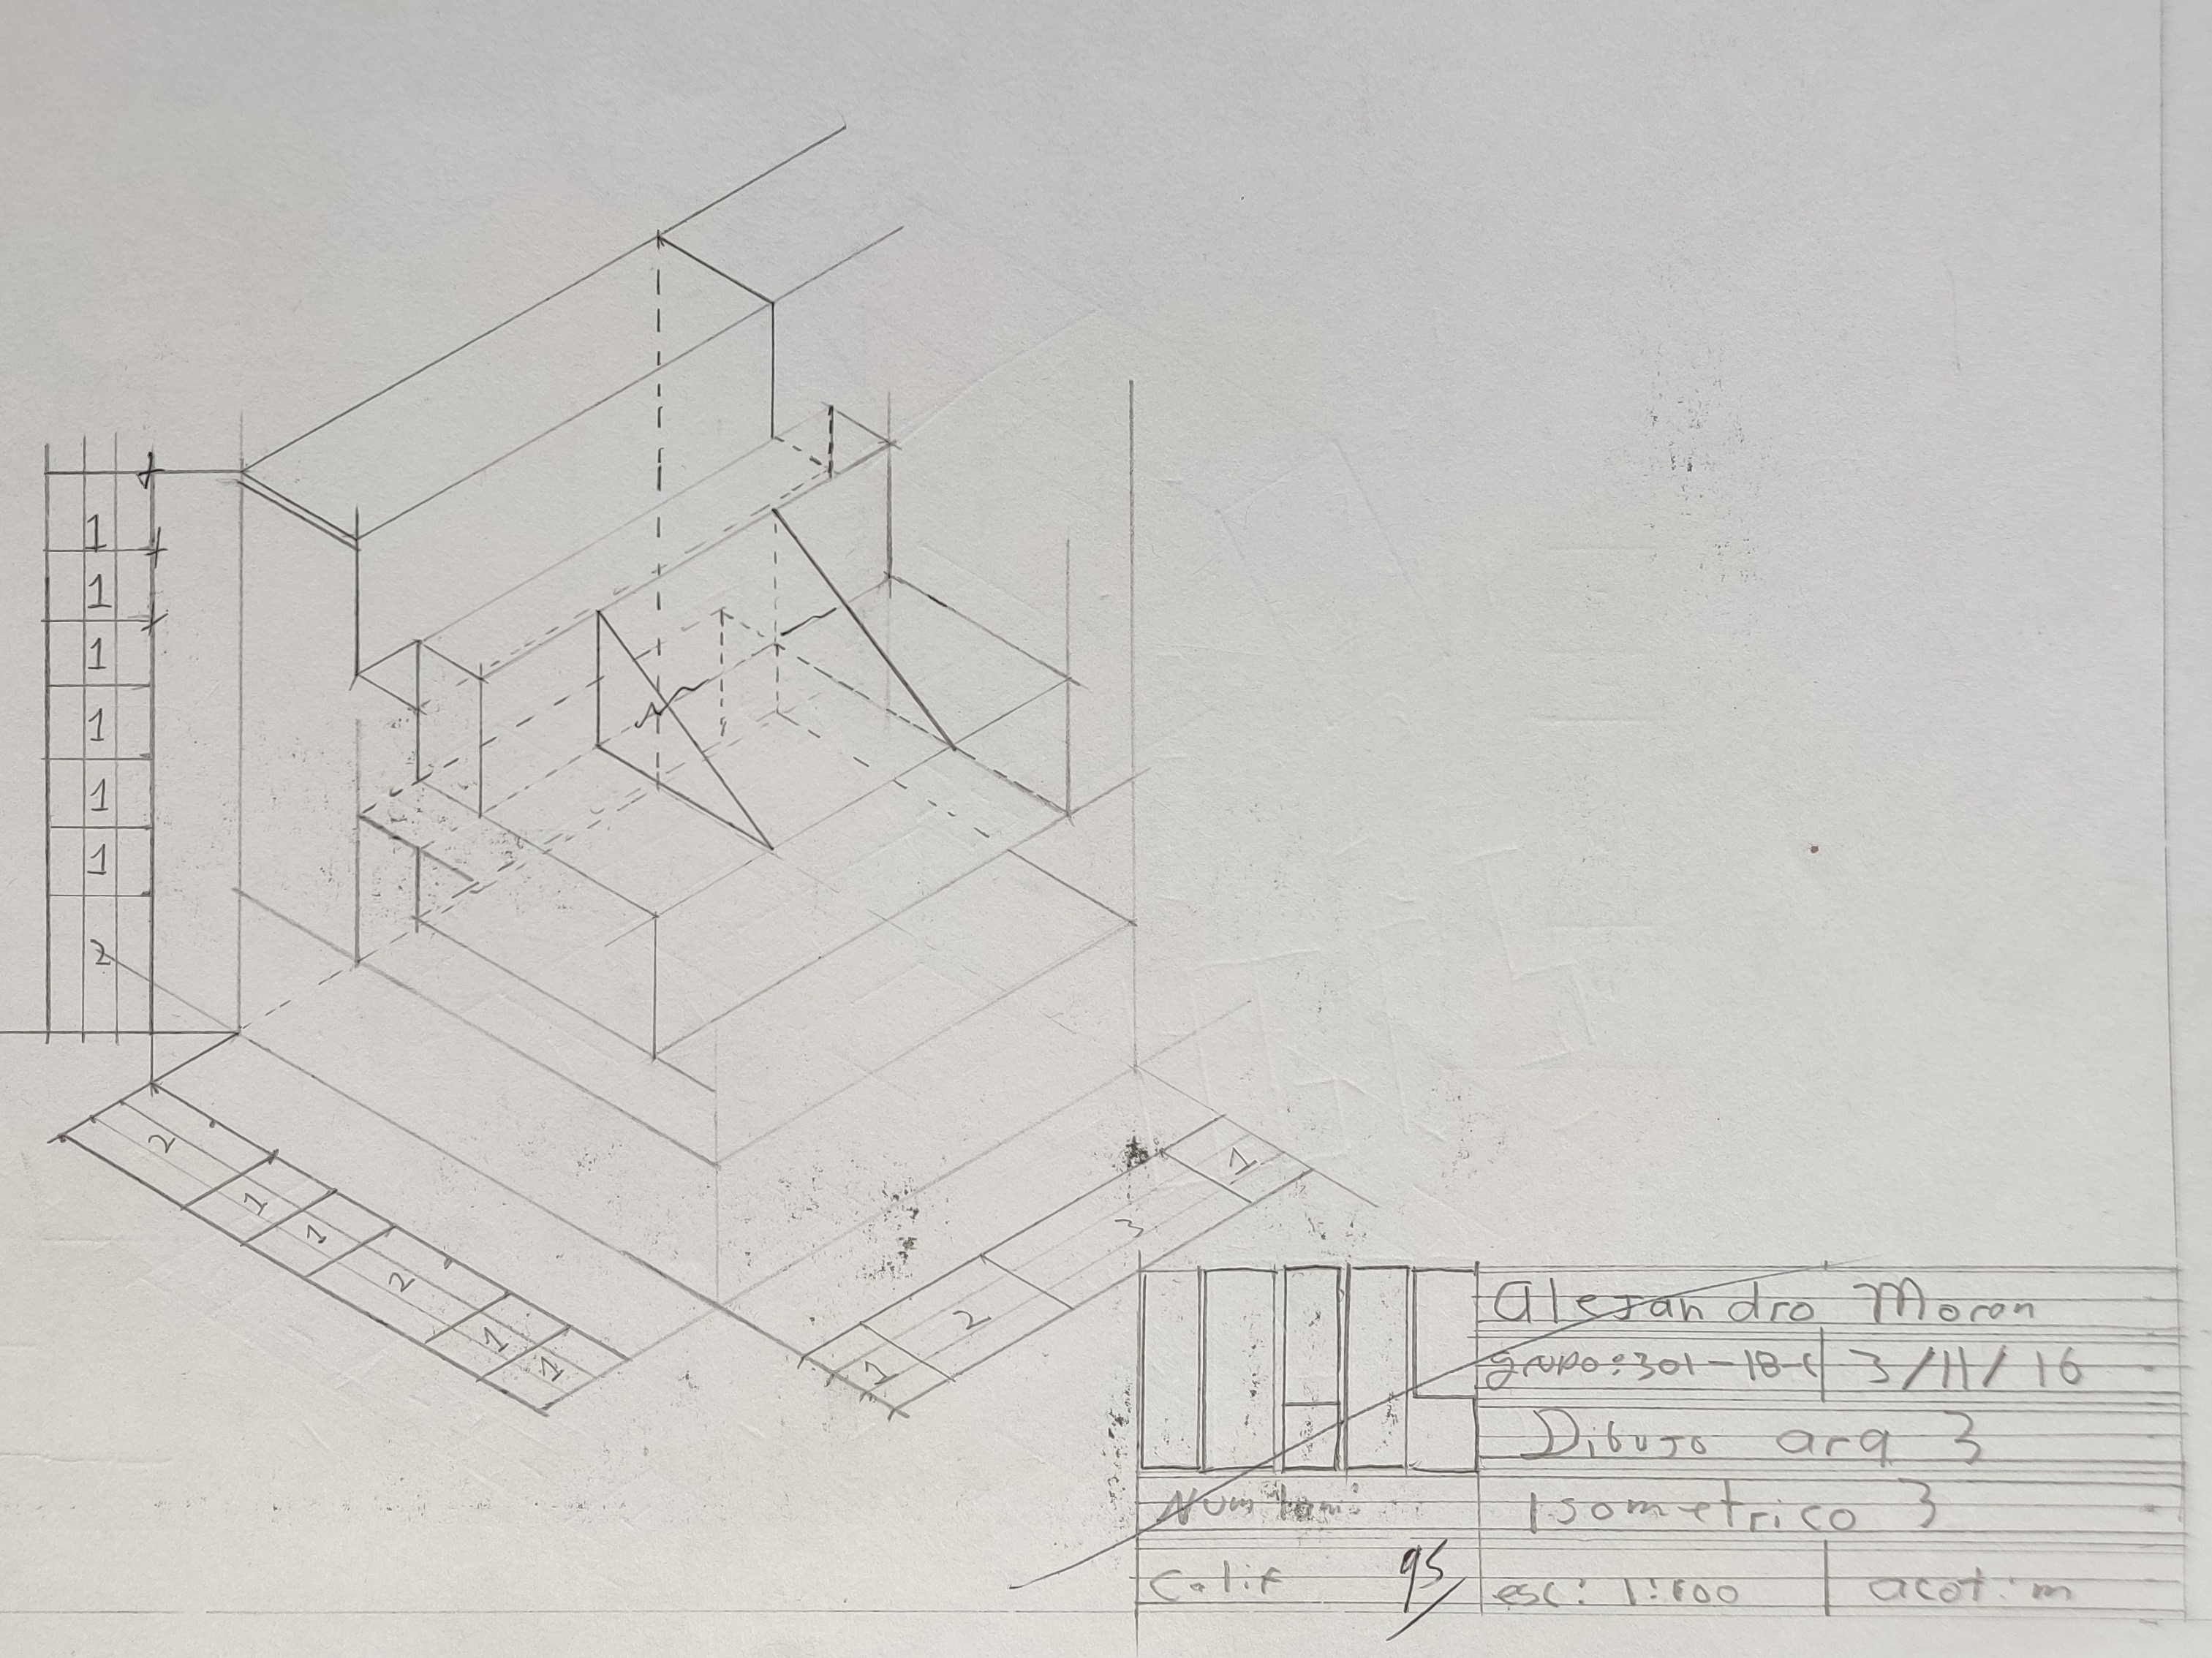 1
1
1
1
1
1
2
2
1
1
2
1
1
1
2
3
1
Alejandro Moron
grupo: 301-18-C
3/11/16
Dibujo arq 3
Isometrico 3
Calif 95
esc: 1:100
acot: m